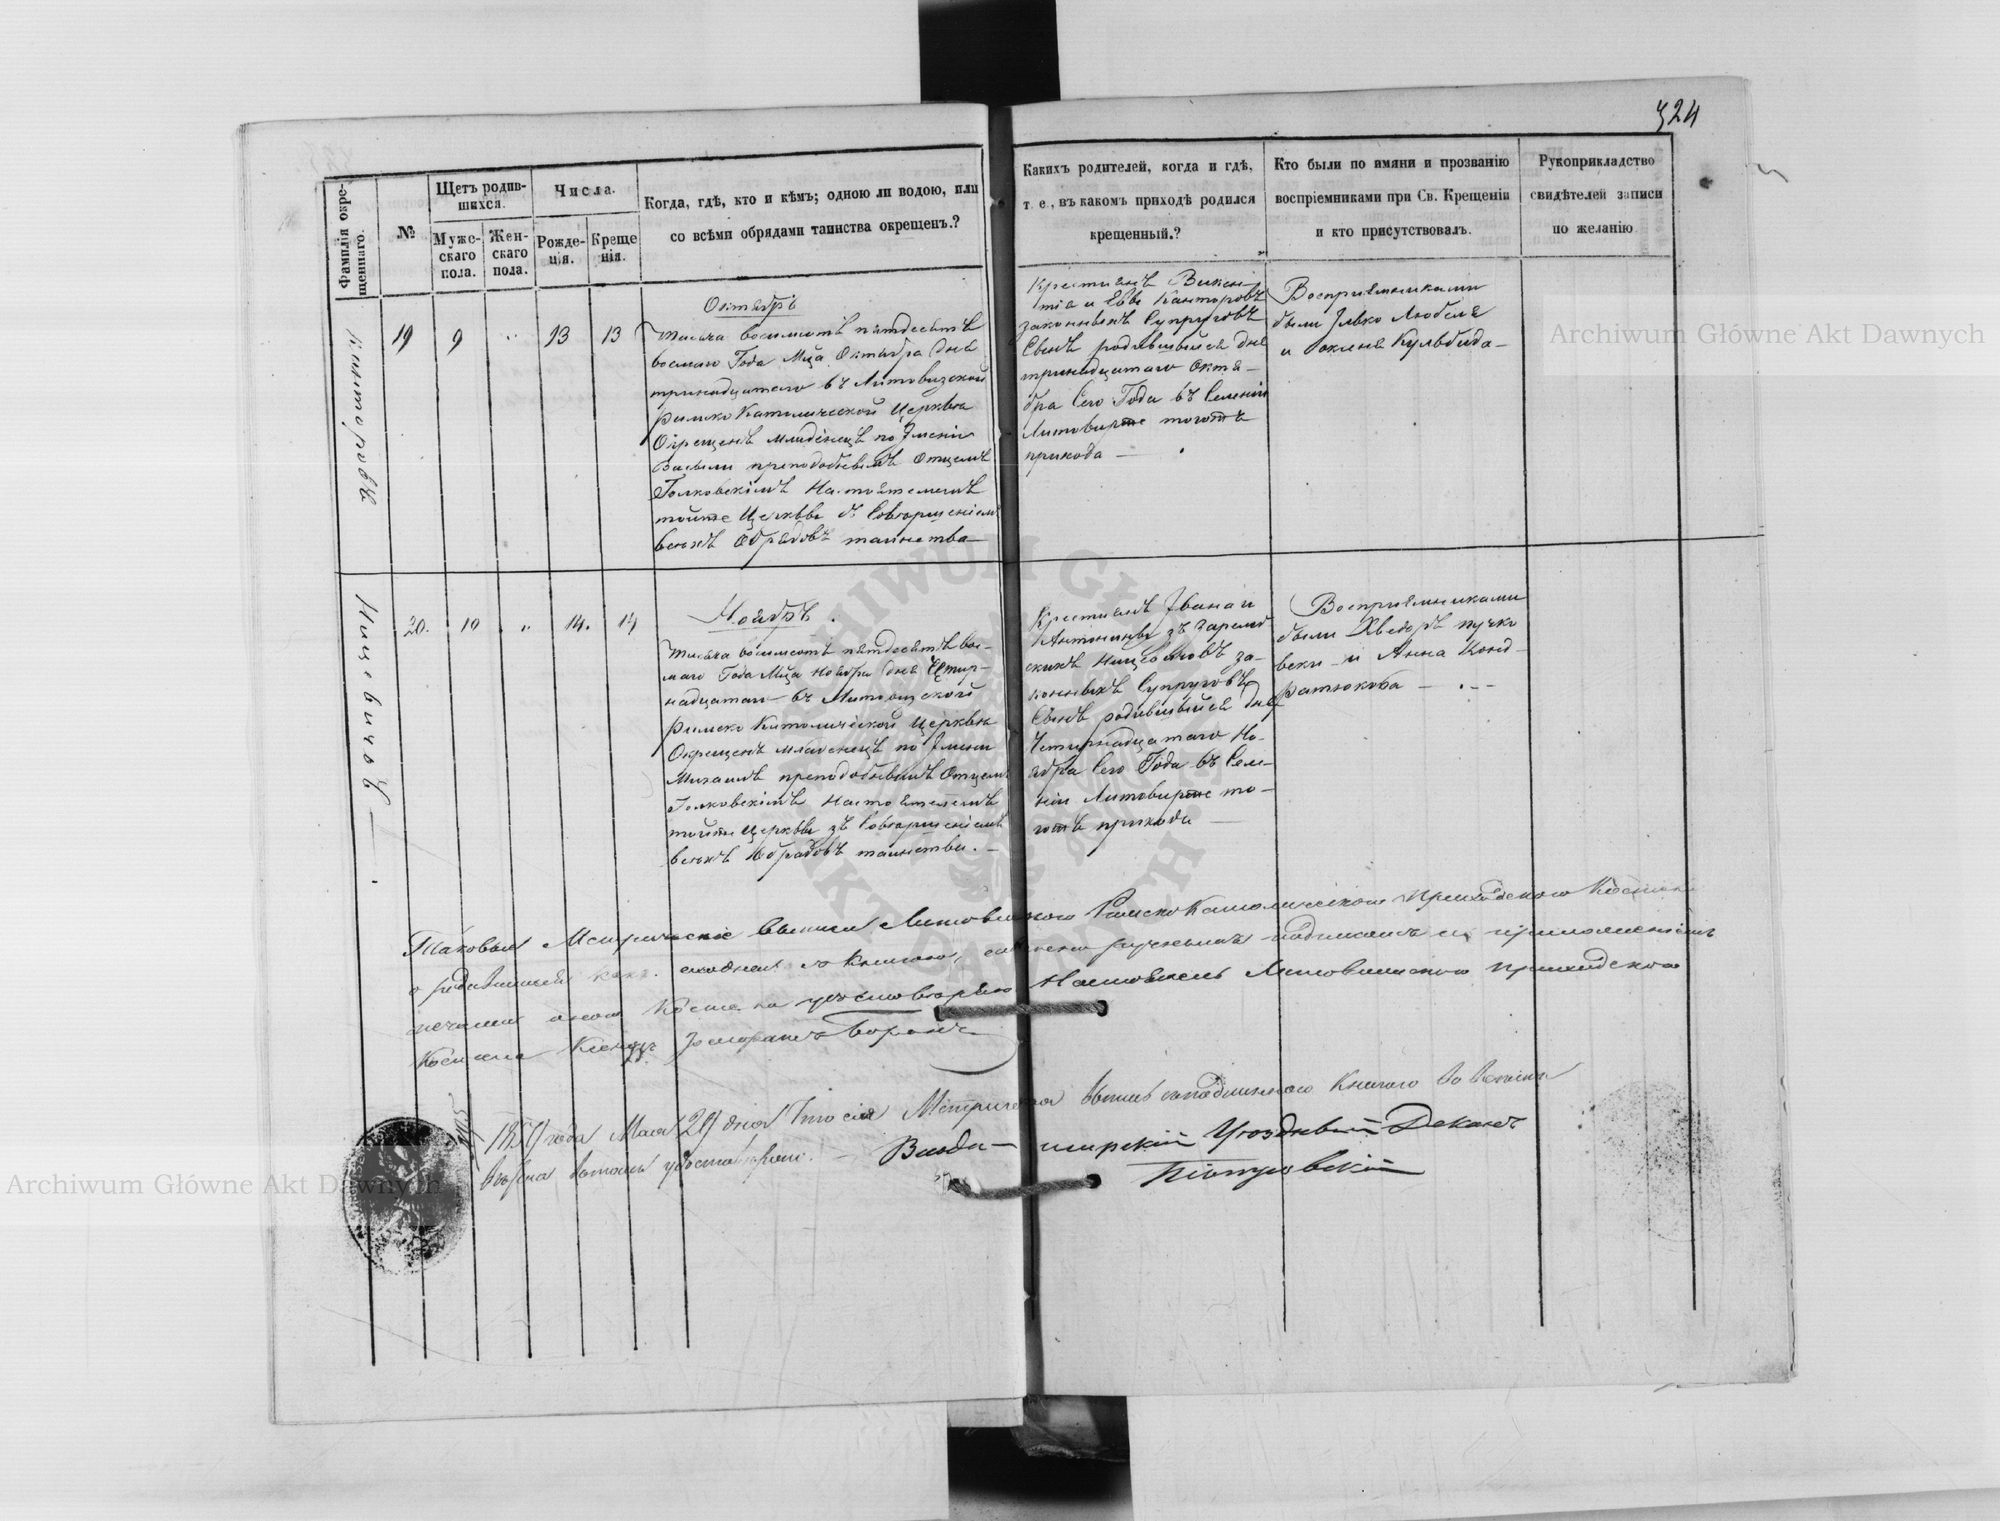 324
Фамилія окре-
щеннаго.
№
Щетъ родив-
шихся.
Мужс-
скаго
пола.
Жен-
скаго
пола.
Числа.
Рожде-
нія.
Креще
нія.
Когда, гдѣ, кто и кѣмъ; одною ли водою, или
со всѣми обрядами таинства окрещенъ.?
Какихъ родителей, когда и гдѣ,
т. е., въ какомъ приходѣ родился
крещенный.?
Кто были по имяни и прозванію
воспріемниками при Св. Крещеніи
и кто присутствовалъ.
Рукоприкладство
свидѣтелей записи
по желанію
Канторовъ
19
9
13
13
Октябрь
Тысяча восимсотъ пятдесятъ
восмаго Года Мца Октября дня
тринадцатаго въ Литовизской
римско Католической Церкви
Окрещенъ младенецъ по Имени
Василій преподобнымъ Отцемъ
Голковскимъ Настоятелемъ
тойже Церкви съ Совершеніемъ
всѣхъ Обрядовъ таинства
Крестьянъ Викен-
тія и Евы Канторовъ
законныхъ Супруговъ
Сынъ родившыйся дня
тринадцатаго Октя-
бра Сего Года въ Селеніи
Литовиже тогожъ
прихода
Воспріемниками
были Илько Любеля
и Кульбида
Ницевичовъ
20.
10
14.
14
Ноябрь
Тысяча восимсотъ пятдесятъ вос-
маго Года Мца Ноября дня Четыр-
надцатаго въ Литовизской
Римско Католической Церкви
Окрещенъ младенецъ по Имени
Михаилъ преподобнымъ Отцемъ
Голковскимъ Настоятелемъ
тойже Церкви зъ Совершеніемъ
всѣхъ Обрядовъ таинства.
Крестьянъ Ивана и
Антонины зъ
законныхъ Супруговъ
Сынъ родившыйся дня
Четырнадцатаго Но-
ября Сего Года въ Селе-
ніи Литовиже то-
гожъ прихода
Воспріемниками
были Хведоръ пучко
вски и Анна Конд-
ратюкова
Таковыя Метрическіе выписи Литовижскаго Римско Католическаго Приходскаго Костела
о родившихся съ книгою, подписомъ и приложеніемъ
печати онаго Костела удостовѣряю Настоятель Литовижскаго приходскаго
Костела Ксендзъ
1859 года Мая 29 дня Что сія Метрическая выпись съ подлинною книгою во всемъ
вѣрна въ томъ удостовѣряю. Влади-мирскій Уѣздный Деканъ
Archiwum Główne Akt Dawnych
Archiwum Główne Akt Dawnych
ARCHIWUM GŁÓWNE AKT DAWNYCH